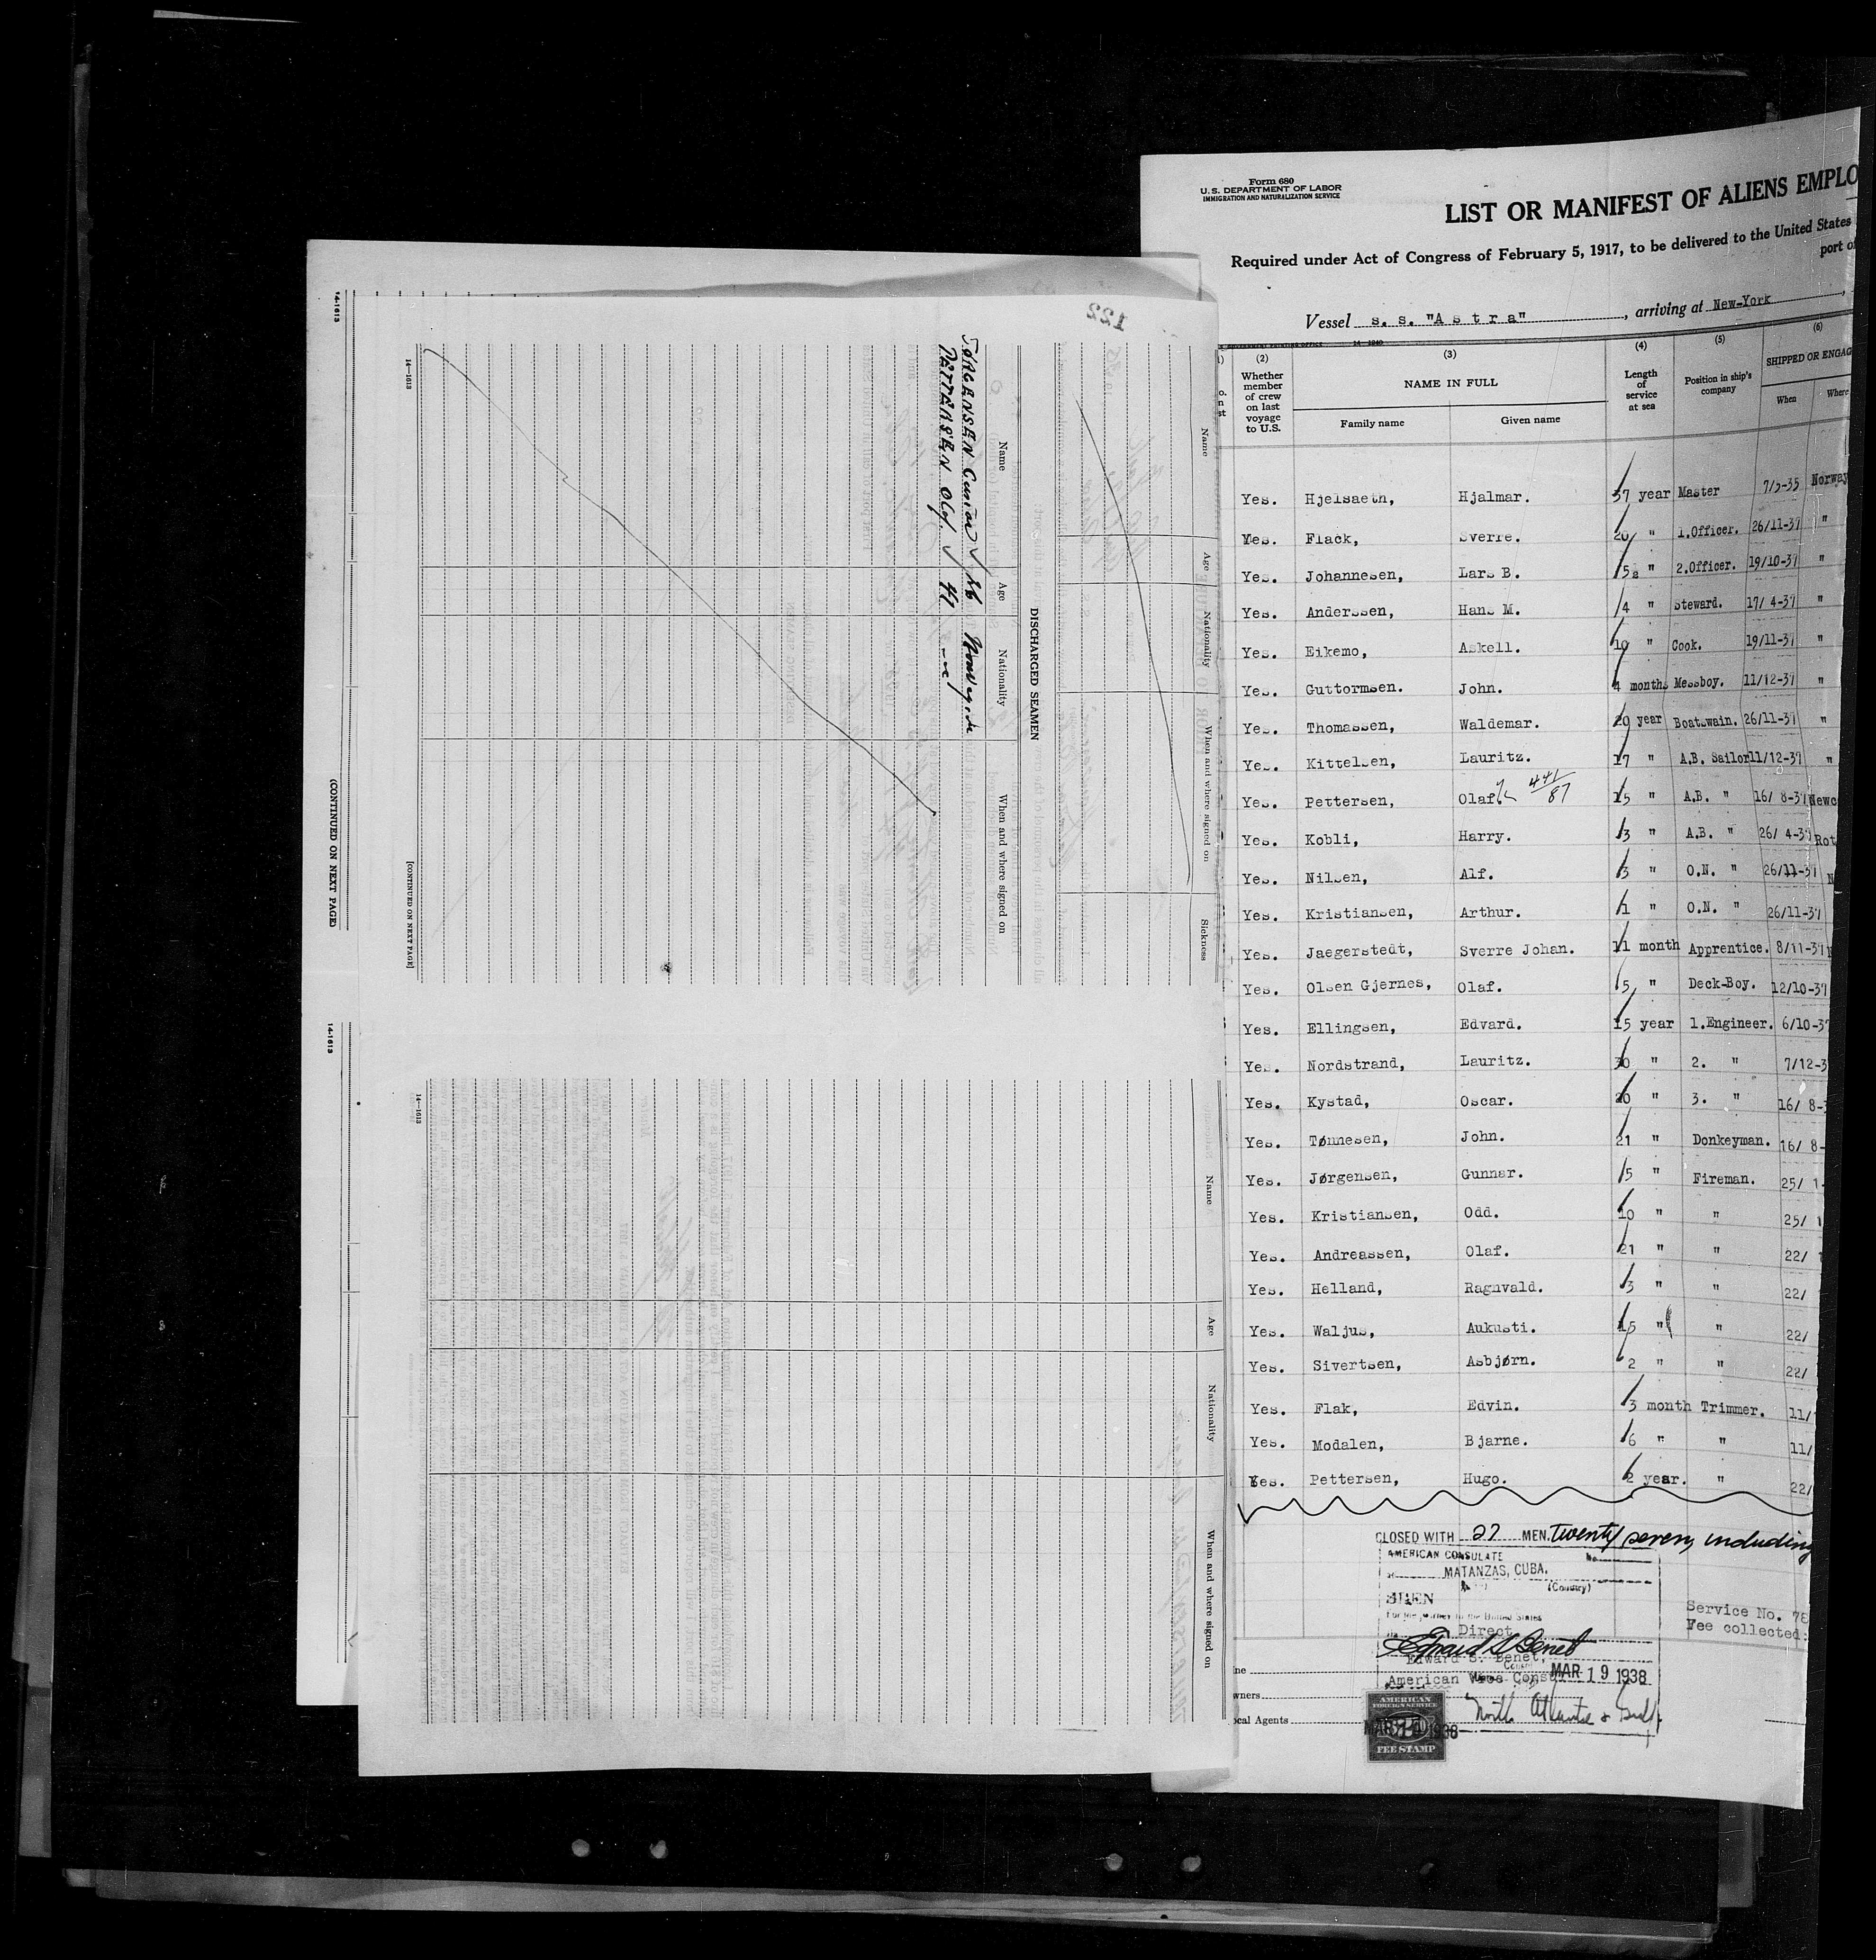 Form 680
U. S. DEPARTMENT OF LABOR
IMMIGRATION AND NATURALIZATION SERVICE
LIST OR MANIFEST OF ALIENS EMPLO
Required under Act of Congress of February 5, 1917, to be delivered to the United States
port of
Vessel s. s. "A s t r a" , arriving at New-York ,
(2) (3) (4) (5) (6)
Whether member of crew on last voyage to U.S. NAME IN FULL Length of service at sea Position in ship's company SHIPPED OR ENGAG
Family name Given name When Where
Yes. Hjelsaeth, Hjalmar. 37 year Master 7/5-35 Norway
Yes. Flack, Sverre. 20 " 1.Officer. 26/11-37 "
Yes. Johannesen, Lars B. 5 " 2.Officer. 19/10-37 "
Yes. Anderssen, Hans M. 4 " Steward. 17/ 4-37 "
Yes. Eikemo, Askell. 10 " Cook. 19/11-37 "
Yes. Guttormsen. John. 4 months Messboy. 11/12-37 "
Yes. Thomassen, Waldemar. 20 year Boatswain. 26/11-37 "
Yes. Kittelsen, Lauritz. 17 " A.B. Sailor 11/12-37 "
Yes. Pettersen, Olaf. 441/87 15 " A.B. " 16/ 8-37 Newc
Yes. Kobli, Harry. 3 " A.B. " 26/ 4-37 Rot
Yes. Nilsen, Alf. 3 " O.N. " 26/11-37 N
Yes. Kristiansen, Arthur. 1 " O.N. " 26/11-37
Yes. Jaegerstedt, Sverre Johan. 11 month Apprentice. 8/11-37
Yes. Olsen Gjernes, Olaf. 5 " Deck-Boy. 12/10-37
Yes. Ellingsen, Edvard. 15 year 1.Engineer. 6/10-3
Yes. Nordstrand, Lauritz. 30 " 2. " 7/12-3
Yes. Kystad, Oscar. 20 " 3. " 16/ 8-3
Yes. Tønnesen, John. 21 " Donkeyman. 16/ 8-
Yes. Jørgensen, Gunnar. 5 " Fireman. 25/ 1-
Yes. Kristiansen, Odd. 10 " " 25/ 1
Yes. Andreassen, Olaf. 21 " " 22/ 1
Yes. Helland, Ragnvald. 3 " " 22/
Yes. Waljus, Aukusti. 15 " " 22/
Yes. Sivertsen, Asbjørn. 2 " " 22/
Yes. Flak, Edvin. 3 month Trimmer. 11/
Yes. Modalen, Bjarne. 6 " " 11/
Yes. Pettersen, Hugo. 2 year. " 22/
CLOSED WITH 27 MEN. twenty seven, including
AMERICAN CONSULATE
MATANZAS, CUBA.
(Country)
SEEN
For the journey to the United States
Direct
Edward S. Benet
Edward S. Benet,
American Vice Consul MAR 19 1938
Service No. 78
Fee collected:
ne
wners
ocal Agents
North Atlantic & Gulf
AMERICAN
FOREIGN SERVICE
MAR 19 1938
FEE STAMP
122
Name Age Nationality When and where signed on Sickness
DISCHARGED SEAMEN
Name Age Nationality When and where signed on
JØRGENSEN Gunnar 26 Norwegian
PETTERSEN Olaf. 47
14—1613
[CONTINUED ON NEXT PAGE]
14-1613
(CONTINUED ON NEXT PAGE)
Name Age Nationality When and where signed on
14—1613
14-1613